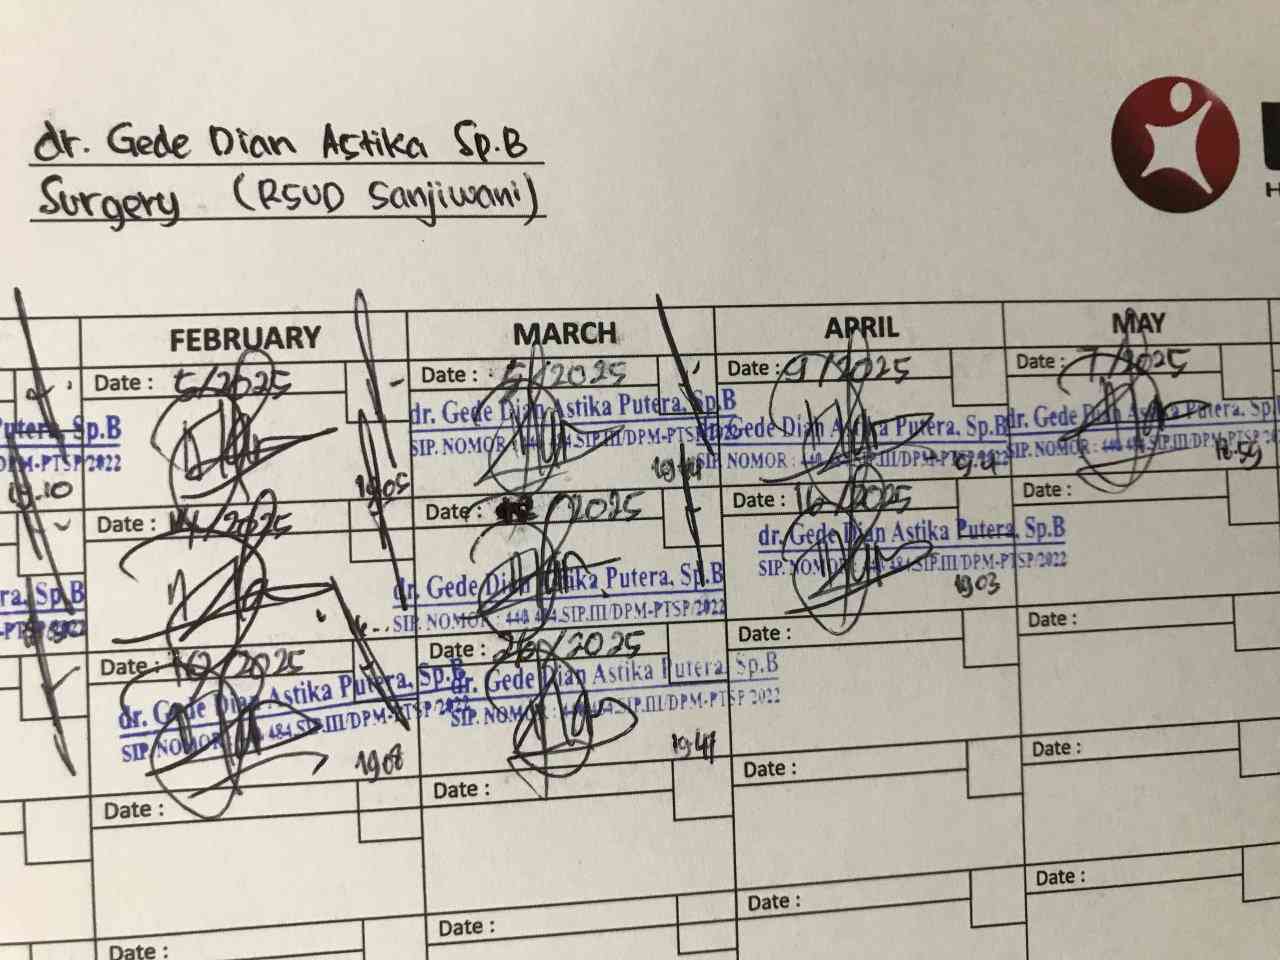 dr. Gede Dian Astika Sp.B
Surgery (RSUD Sanjiwani)
H
FEBRUARY MARCH APRIL MAY
Date : 5/2025 Date : 5/2025 Date : 9/2025 Date : 7/2025
Putera, Sp.B dr. Gede Dian Astika Putera, Sp.B Gede Dian Astika Putera, Sp.B dr. Gede Dian Astika Putera, Sp.
DPM-PTSP/2022 SIP. NOMOR : 440 484.SIP.III/DPM-PTSP/2022 SIP. NOMOR : 440 484.SIP.III/DPM-PTSP/2022 SIP. NOMOR : 440 484.SIP.III/DPM-PTSP/2
19.05 18.59
Date : 14/2025 Date : /2025 Date : 16/2025 Date :
dr. Gede Dian Astika Putera, Sp.B
SIP. NOMOR : 440 484.SIP.III/DPM-PTSP/2022
1903
ra, Sp.B dr. Gede Dian Astika Putera, Sp.B
SIP. NOMOR : 440 484.SIP.III/DPM-PTSP/2022
Date : 19/2025 Date : 26/2025 Date : Date :
dr. Gede Dian Astika Putera, Sp.B dr. Gede Dian Astika Putera, Sp.B
SIP. NOMOR : 440 484.SIP.III/DPM-PTSP/2022 SIP. NOMOR : 440 484.SIP.III/DPM-PTSP/2022
1908 1941
Date : Date : Date : Date :
Date : Date : Date : Date :